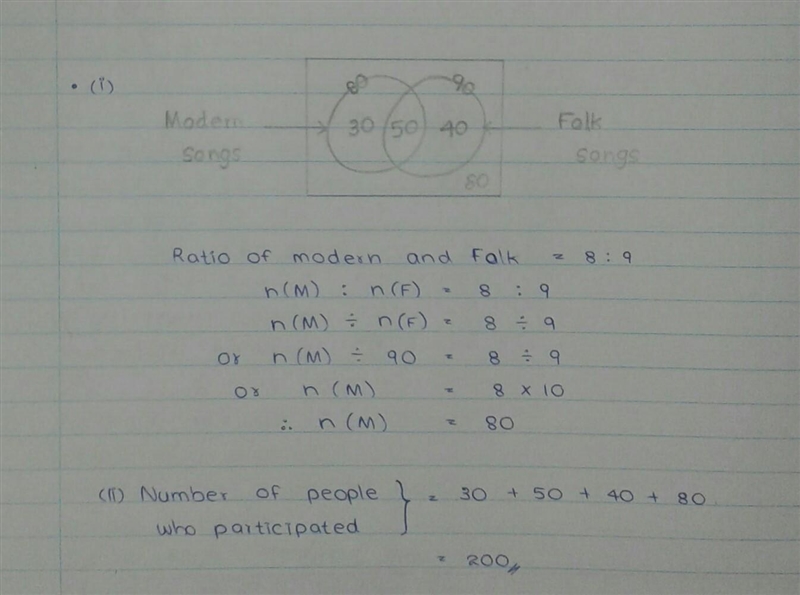 • (i)
80 90
Modern 30 50 40 Folk
songs songs
80
Ratio of modern and Folk = 8 : 9
n(M) : n(F) = 8 : 9
n(M) ÷ n(F) = 8 ÷ 9
or n(M) ÷ 90 = 8 ÷ 9
or n(M) = 8 × 10
∴ n(M) = 80
(ii) Number of people } = 30 + 50 + 40 + 80
who participated
= 200//